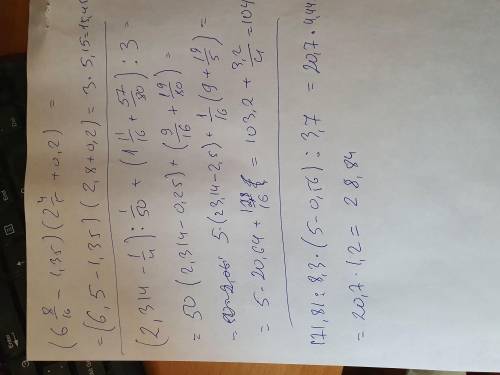 (6 8/16 - 1,35)(2 4/5 + 0,2) =
= (6,5 - 1,35)(2,8 + 0,2) = 3 · 5,15 = 15,45
(2,314 - 1/4) : 1/50 + (1 11/16 + 57/80) : 3 =
= 50 (2,314 - 0,25) + (9/16 + 19/80) =
= 5 · (23,14 - 2,5) + 1/16 (9 + 19/5) =
= 5 · 20,64 + = 103,2 + 3,2/4 = 104
(71,8) : 8,3 · (5 - 0,56) : 3,7 = 20,7 · 4,44
= 20,7 · 1,2 = 28,84